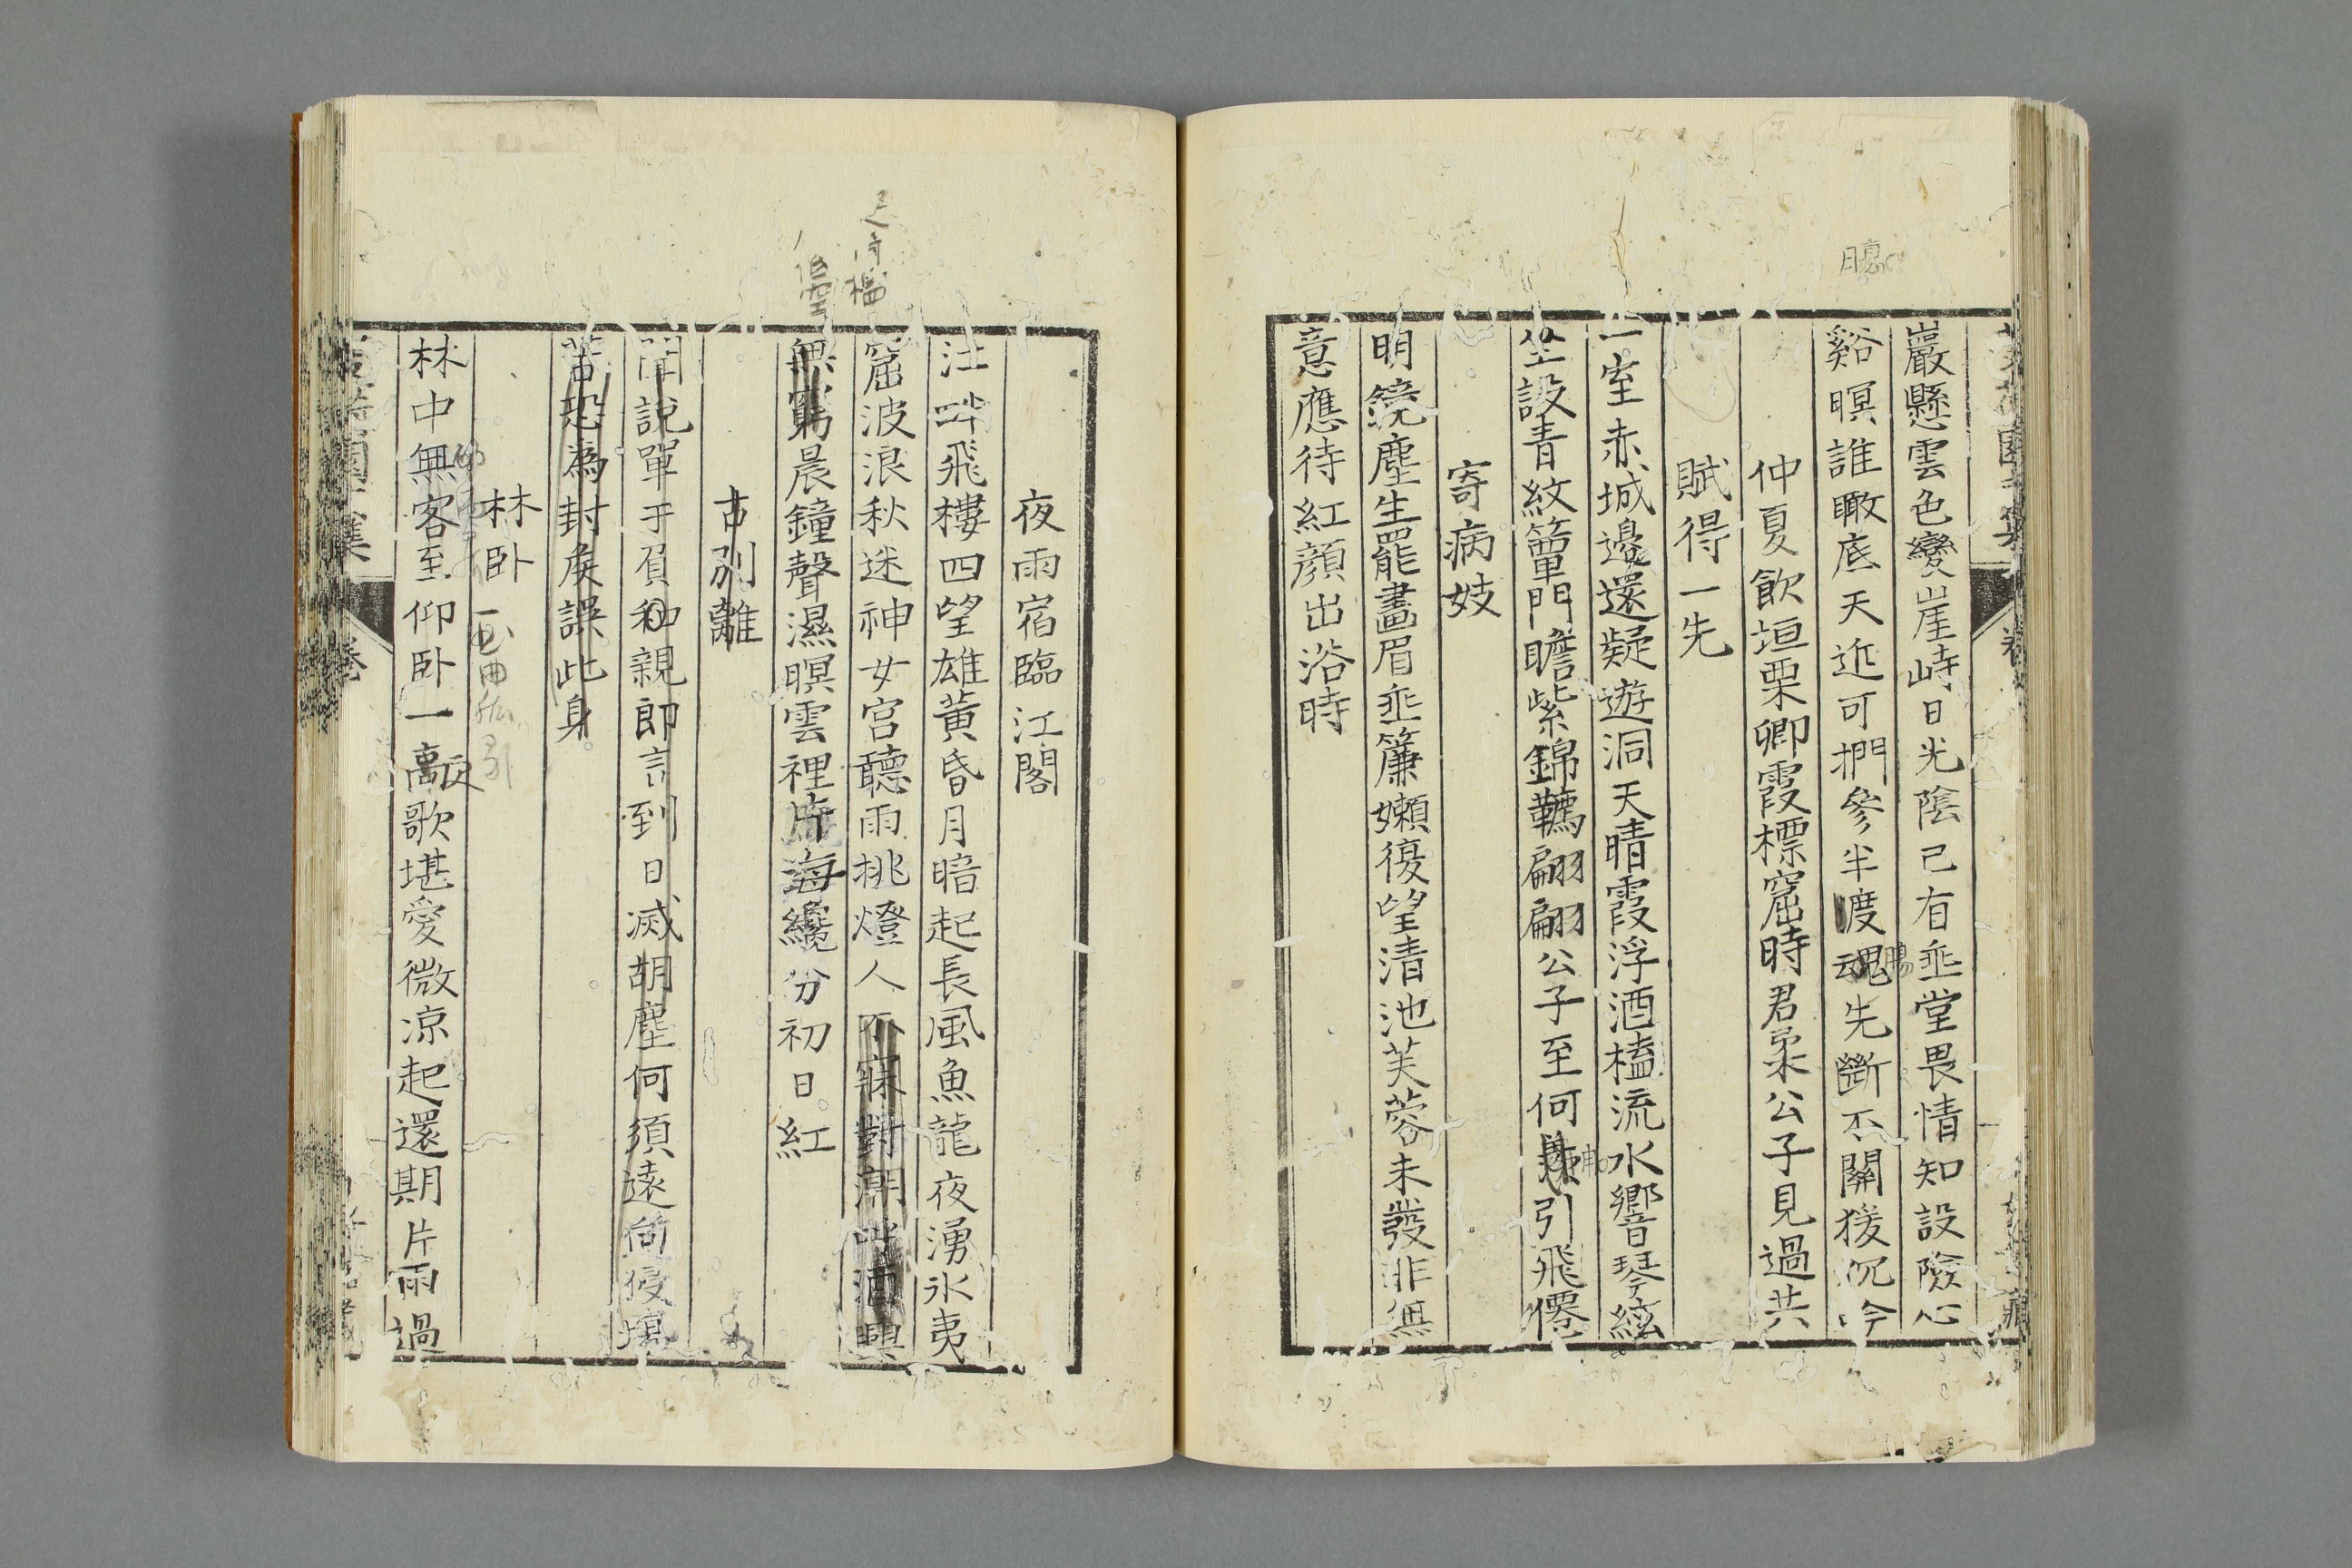 巖懸雲色變崖峙日光陰已有垂堂畏情知設險心
谿暝誰瞰底天近可捫參半渡魂先斷不關猨沉吟
仲夏飲垣栗卿霞標窟時君柔公子見過共
賦得一先
一室赤城邊還疑遊洞天晴霞浮酒榼流水響琴絃
坐設青紋簟門瞻紫錦韉翩翩公子至何引飛僊
寄病妓
明鏡塵生罷畫眉垂簾嬾復望清池芙蓉未發非無
意應待紅顏出浴時
夜雨宿臨江閣
江畔飛樓四望雄黃昏月暗起長風魚龍夜湧氷夷
窟波浪秋迷神女宮聽雨挑燈人不寐對潮呼酒興
無窮晨鐘聲濕暝雲裡片海纔分初日紅
古別離
聞說單于負和親即言到日滅胡塵何須遠
苦恐為封矦誤此身
林卧
林中無客至仰卧一歌堪愛微涼起還期片雨過